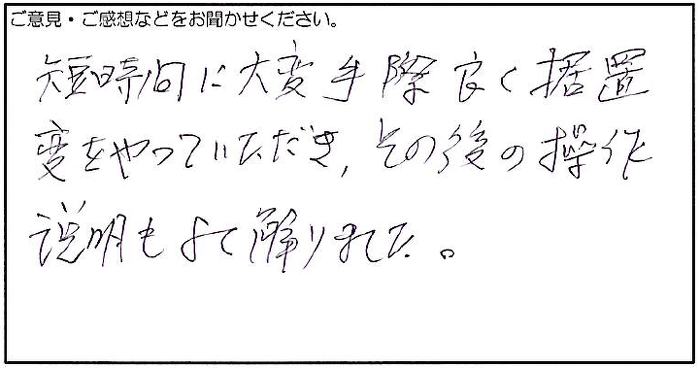 ご意見・ご感想などをお聞かせください。
短時間に大変手際良く据置
変をやっていただき、その後の操作
説明もよく解りました。